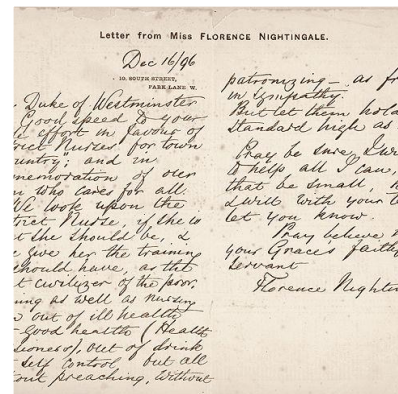 Letter from Miss FLORENCE NIGHTINGALE.
Dec 16/96
10. SOUTH STREET,
PARK LANE. W.
Duke of Westminster
Good speed to your
effort in favour of
rict Nurses, for town
untry; and in
memoration of our
n who cares for all.
We look upon the
trict Nurse, if she is
t she should be, &
give her the training
should have, as the
t civilizer of the poor,
ing as well as nursing
out of ill health
good health (Health
ioners), out of drink
self control but all
out preaching, without
patronizing — as fr
in sympathy.
But let them hold
standard high as
Pray be sure I wi
to help all I can,
that be small,
I will with your
let you know.
Pray believe
your Grace's faithf
servant
Florence Nightin